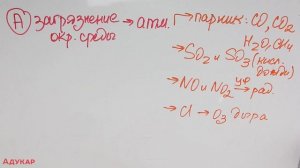 А загрязнение окр. среды → атм. → парник: CO, CO2
H2O, CH4
→ SO2 и SO3 (кисл. дожди)
→ NO и NO2 уф→ рад.
→ Cl → O3 дыра
Адукар